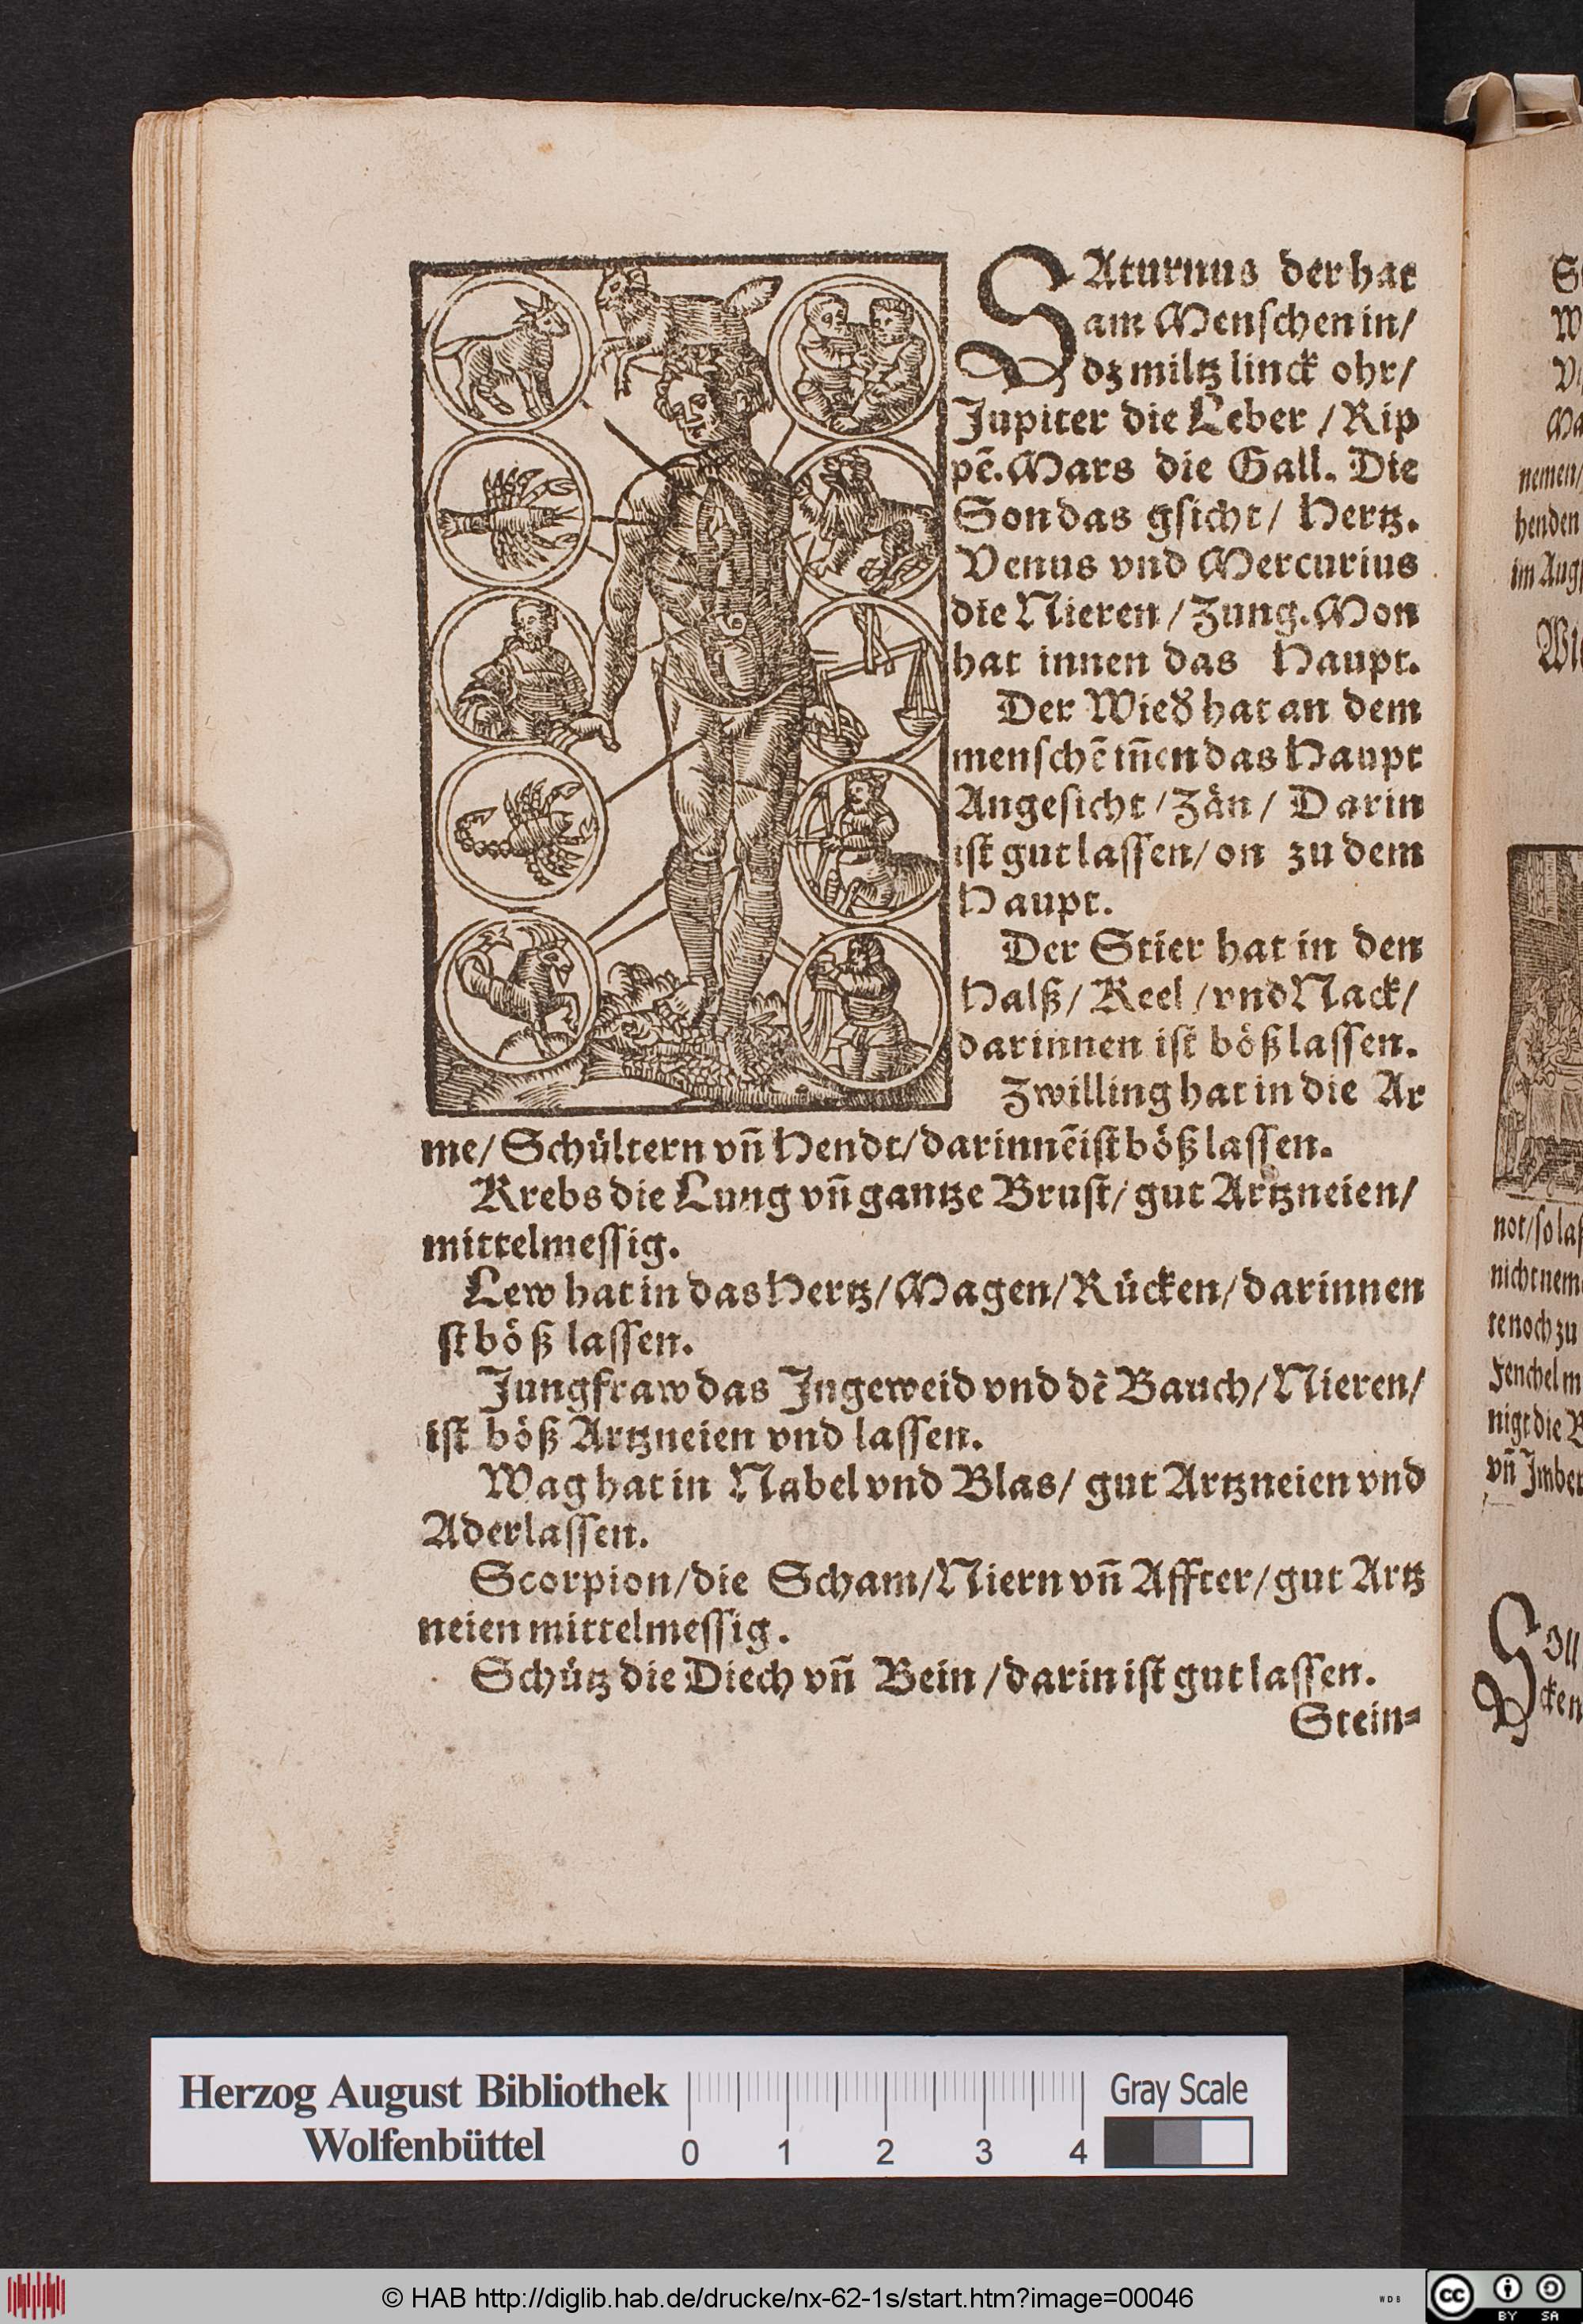 SAturnus der hat
am Menschen in/
dz miltz linck ohr/
Jupiter die Leber / Rip
pẽ. Mars die Gall. Die
Son das gsicht/ Hertz.
Venus vnd Mercurius
die Nieren / Zung. Mon
hat innen das Haupt.
Der Wied hat an dem
menschẽ iñen das Haupt
Angesicht / Zän / Darin
ist gut lassen/ on zu dem
Haupt.
Der Stier hat in den
Halß/ Keel / vnd Nack/
darinnen ist böß lassen.
Zwilling hat in die Ar
me/ Schültern vñ Hendt/ darinnẽ ist böß lassen.
Krebs die Lung vñ gantze Brust/ gut Artzneien/
mittelmessig.
Lew hat in das Hertz/ Magen/ Rücken/ darinnen
st böß lassen.
Jungfraw das Ingeweid vnd dẽ Bauch/ Nieren/
ist böß Artzneien vnd lassen.
Wag hat in Nabel vnd Blas/ gut Artzneien vnd
Aderlassen.
Scorpion/ die Scham/ Niern vñ Affter/ gut Artz
neien mittelmessig.
Schütz die Diech vñ Bein / darin ist gut lassen.
Stein=
nemen/
henden
im Aug
not/ so la
nicht nem
te noch zu
Fenchel m
nigt die B
vñ Imber
cken
Herzog August Bibliothek
Wolfenbüttel
0 1 2 3 4
Gray Scale
© HAB http://diglib.hab.de/drucke/nx-62-1s/start.htm?image=00046
WDB
cc BY SA